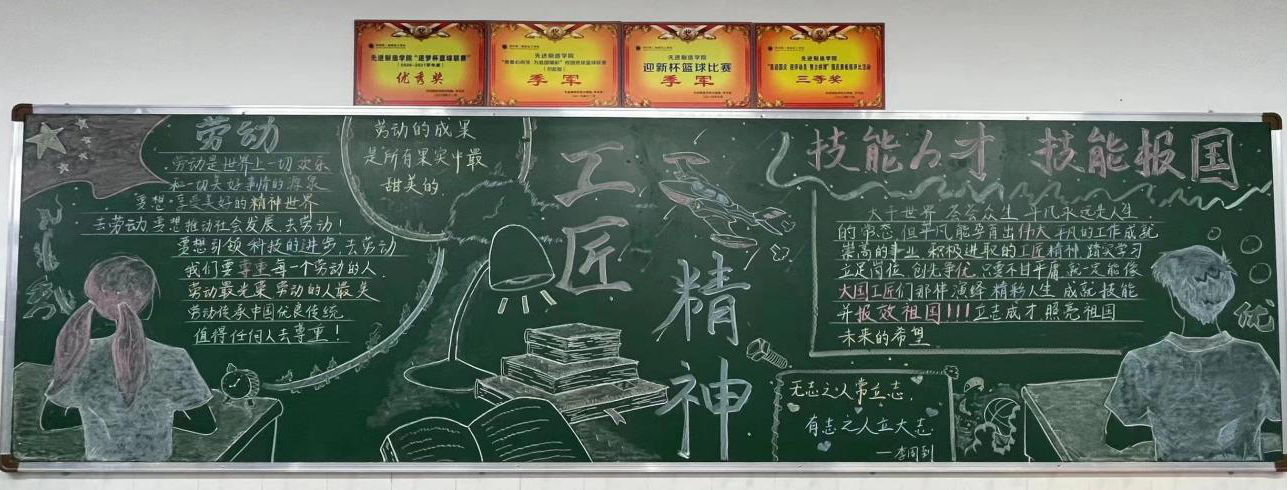 先进制造学院“逐梦杯篮球联赛”
优秀奖
先进制造学院
季军
先进制造学院
迎新杯篮球比赛
季军
先进制造学院
三等奖
劳动
劳动是世界上一切欢乐
和一切美好事情的源泉
要想享受美好的精神世界
去劳动 要想推动社会发展、去劳动!
要想引领科技的进步,去劳动
我们要尊重每一个劳动的人.
劳动最光荣 劳动的人最美
劳动传承中国优良传统
值得任何人去尊重!
劳动的成果
是所有果实中最
甜美的.
工匠
精神
技能人才 技能报国
大千世界 芸芸众生 平凡永远是人生
的常态,但平凡能孕育出伟大 平凡的工作成就
崇高的事业 积极进取的工匠精神,踏实学习
立足岗位,创先争优,只要不甘平庸,就一定能像
大国工匠们那样演绎精彩人生 成就技能
并报效祖国!!!立志成才 照亮祖国
未来的希望
优
无志之人常立志.
有志之人立大志.